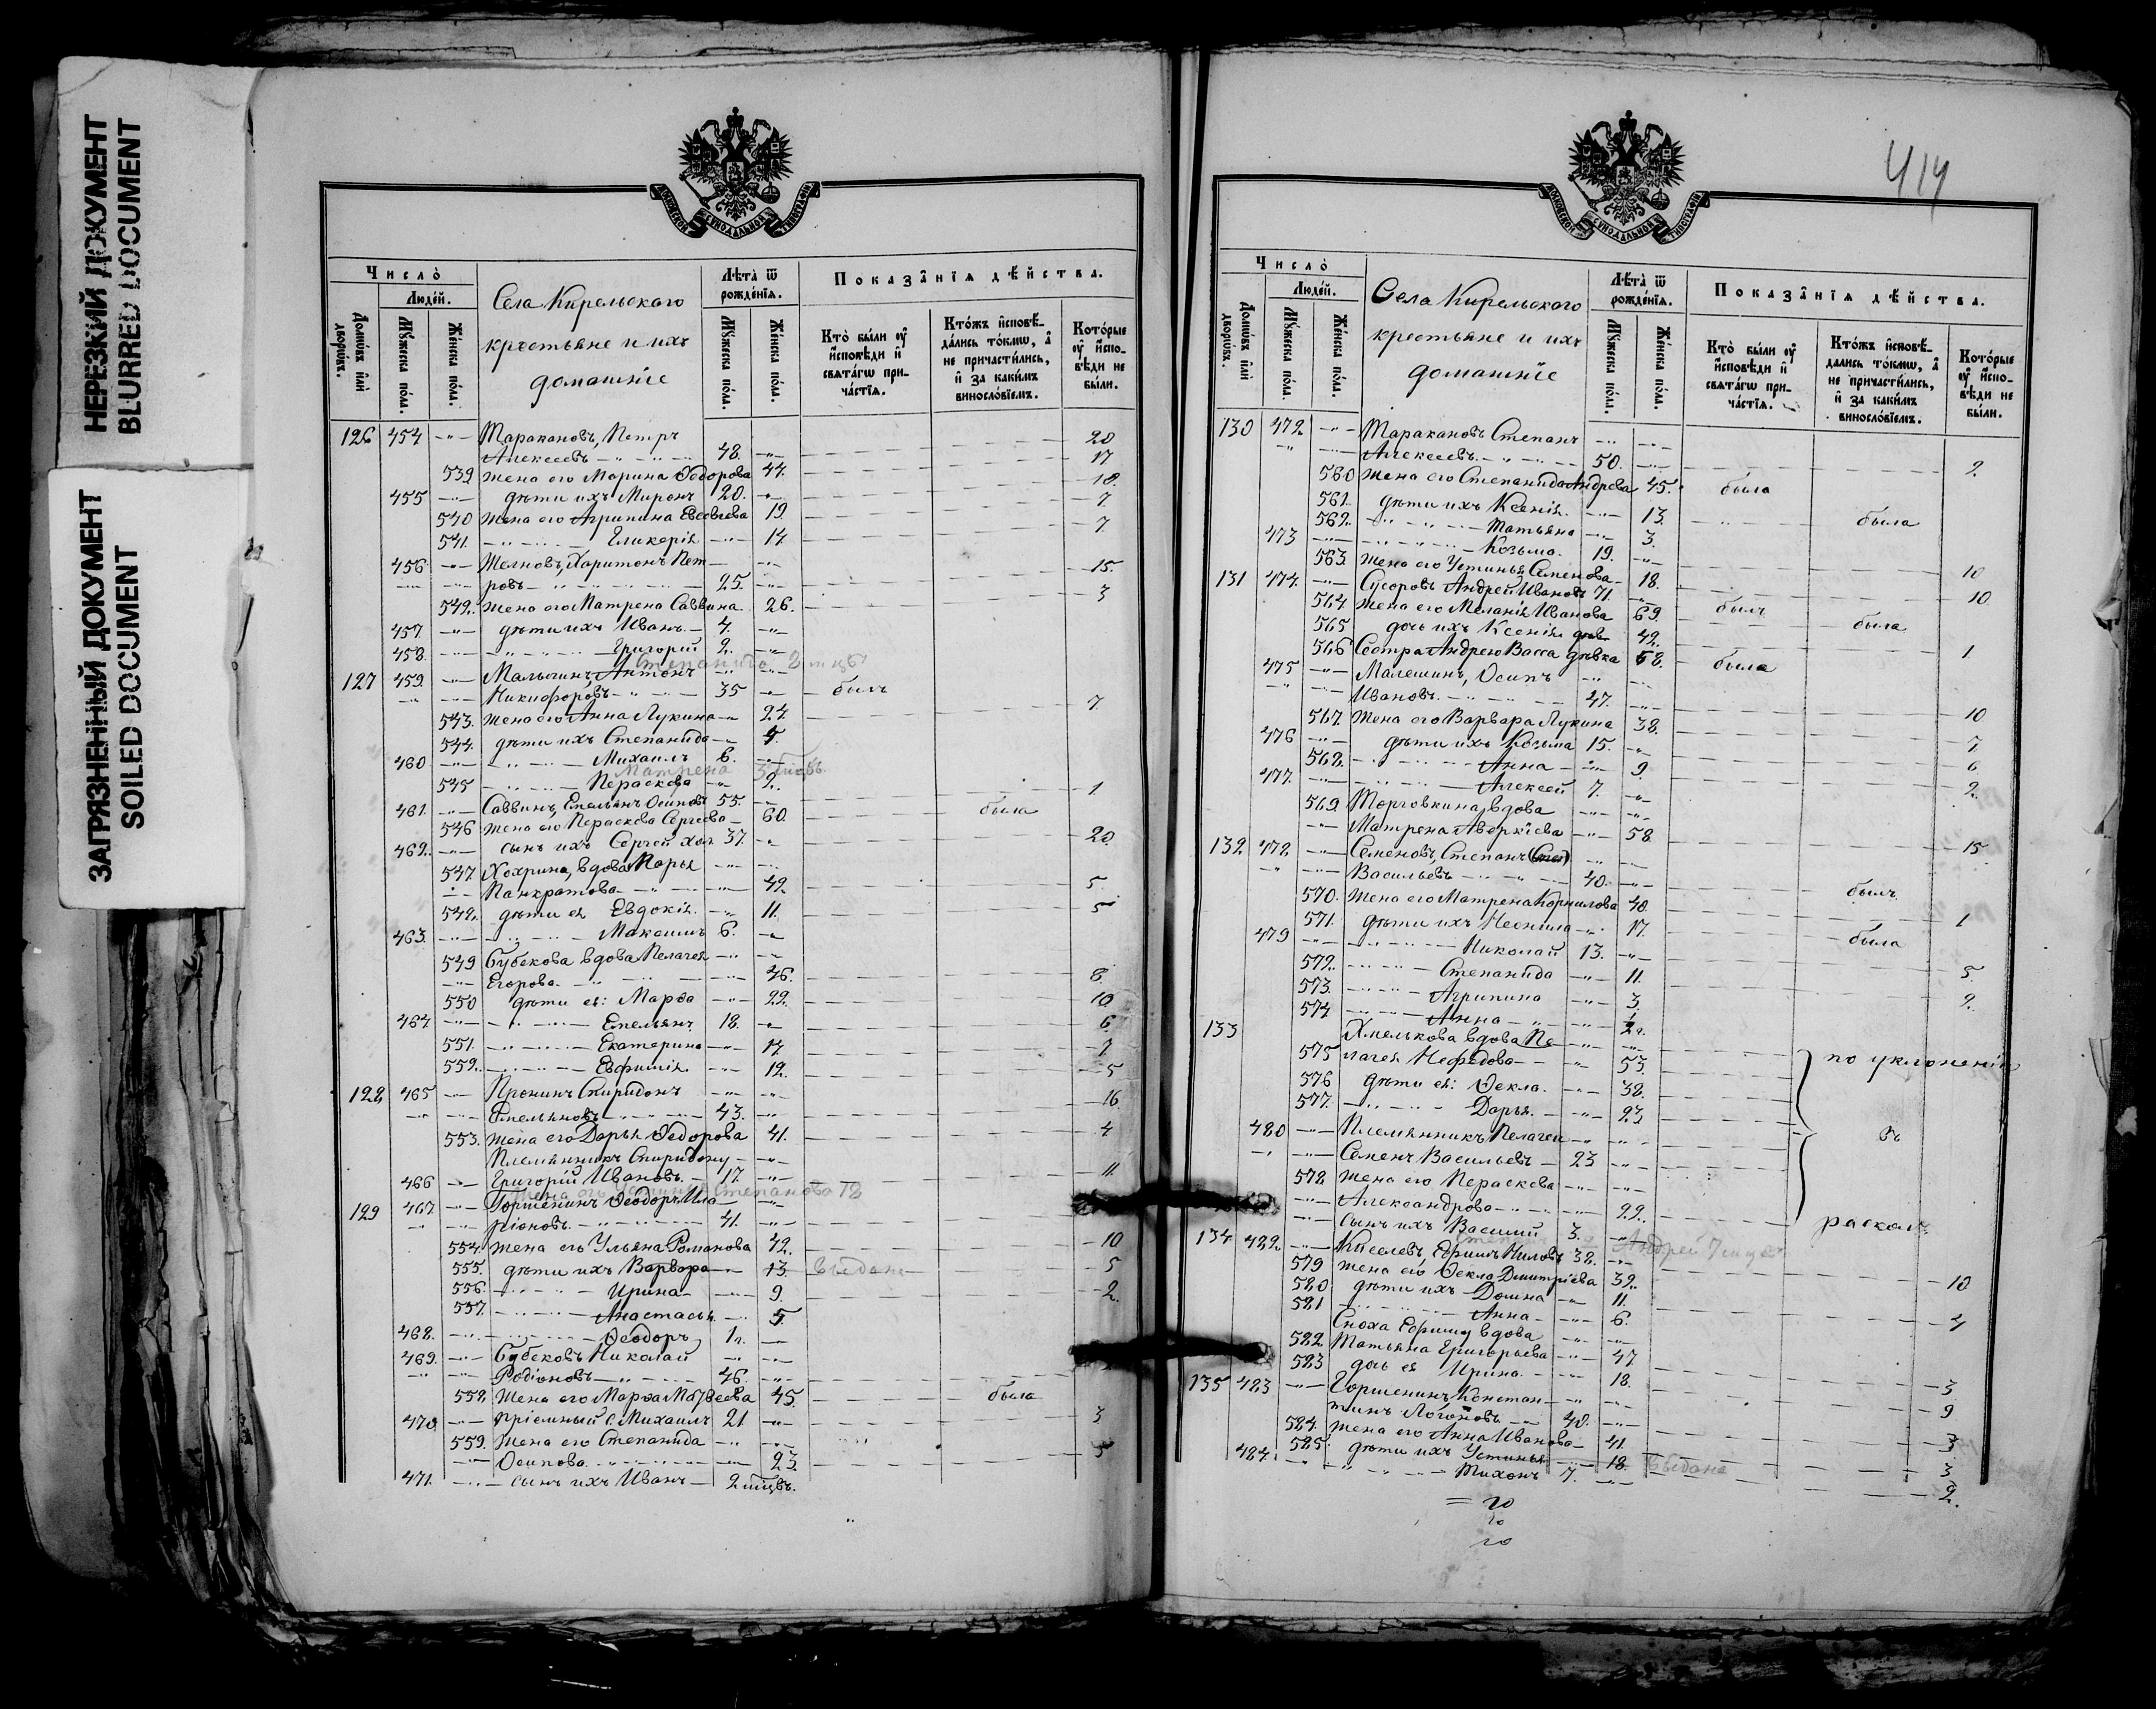 НЕРЕЗКИЙ ДОКУМЕНТ
BLURRED DOCUMENT
ЗАГРЯЗНЕННЫЙ ДОКУМЕНТ
SOILED DOCUMENT
МОСКОВСКОЙ СУНОДАЛЬНОЙ ТИПОГРАФІИ
Число̀
Людей.
Домѡвъ или дворѡвъ.
Мꙋжеска пола.
Женска пола.
Села Кирельскаго
крестьяне и ихъ
домашніе
Лѣта ѿ рожденїѧ.
Мꙋжеска пола.
Женска пола.
Показанїѧ дѣйства.
Кто были ᲂу҆ исповѣди и свѧтагѡ причастїѧ.
Ктожъ исповѣдались токмѡ, а не причастились, и за какимъ винословїемъ.
Которые ᲂу҆ исповѣди не были.
126 454 Таракановъ, Петръ
Алексеевъ 48. 20
539 жена его Марина Ѳедорова 44. 17
455 дѣти ихъ Миронъ 20. 18.
540 жена его Агрипина Евсевьева 19. 7
541. Гликерія 14. 7
456 Желновъ, Харитонъ Пет-
ровъ 25. 15
542. жена его Матрена Саввина 26. 3
457 дѣти ихъ Иванъ 4.
458. Григорий 2.
Степанида 2 мцъ
127 459. Малыгинъ, Антонъ
Никифоровъ 35 былъ
543. жена его Анна Лукина 24. 7
544. дѣти ихъ Степанида 5.
460 Михаилъ 6.
Матрена
545 Пераскева 2.
461. Саввинъ, Емельянъ Осиповъ 55. 1
546 жена его Пераскева Сергеева 60. была
462. сынъ ихъ Сергей хол 37. 20
547. Хохрина, вдова Марья
Панкратова 42 5
548. дѣти ея Евдокія 11. 5
463. Максимъ 6.
549 Бубекова вдова Пелагея
Егорова 46. 8
550 дѣти ея: Марѳа 22. 10
464 Емельянъ 18. 6
551. Екатерина 14 7
552. Евфимія 12. 5
128 465 Пронинъ Спиридонъ
Емельяновъ 43. 16
553. жена его Дарья Ѳедорова 41. 4
Племянникъ Спиридону
466 Григорій Ивановъ 17. 11.
жена его Устинья Степанова 18
129 467 Горшенинъ Ѳеодоръ Ила-
ріоновъ 41.
554. жена его Ульяна Романова 42. 10
555. дѣти ихъ Варвара 13. выдана 5
556. Ирина 9. 2.
557. Анастасья 5
468. Ѳеодоръ 1л.
469. Бубековъ Николай
Родіоновъ 46.
558. Жена его Марѳа Матвеева 45. была
470 Пріемный с. Михаилъ 21 3
559. Жена его Степанида
Осипова 23. 5
471. сынъ ихъ Иванъ 2 мцвъ.
414
МОСКОВСКОЙ СУНОДАЛЬНОЙ ТИПОГРАФІИ
Число̀
Людей.
Домѡвъ или дворѡвъ.
Мꙋжеска пола.
Женска пола.
Села Кирельскаго
крестьяне и ихъ
домашніе
Лѣта ѿ рожденїѧ.
Мꙋжеска пола.
Женска пола.
Показанїѧ дѣйства.
Кто были ᲂу҆ исповѣди и свѧтагѡ причастїѧ.
Ктожъ исповѣдались токмѡ, а не причастились, и за какимъ винословїемъ.
Которые ᲂу҆ исповѣди не были.
130 472 Таракановъ Степанъ
Алексеевъ 50. 2
560 жена его Степанида Андрева 45. была
561. дѣти ихъ Ксенія 13. была
562. Татьяна 3.
473 Козьма 19.
563. жена его Устинья Семенова 18. 10
131 474. Сусоровъ Андрей Ивановъ 71. 10
564. жена его Меланія Иванова 69. былъ
565 дочь ихъ Ксенія дѣв 42. была
566 Сестра Андрею Васса дѣвка 68. была 1
475 Малешинъ, Осипъ
Ивановъ 47.
567. жена его Варвара Лукина 38. 10
476 дѣти ихъ Козьма 15. 7
568. Анна 9. 6
477. Алексей 7. 2
569. Торговкина, вдова
Матрена Аверкіева 58. 15
132 478 Семеновъ, Степанъ
Васильевъ 40.
570. жена его Матрена Корнилова 40. былъ
571. дѣти ихъ Неонила 17. 1
479 Николай 13. была
572. Степанида 11. 5
573. Агрипина 3. 2
574 Анна
133 Хмелькова вдова Пе-
575 лагея Нефедова 53. по уклоненію
576 дѣти ея: Ѳекла 38.
577. Дарья 23
480 Племянникъ Пелагеи въ
Семенъ Васильевъ 23
578 жена его Пераскева
Александрова 22.
сынъ ихъ Василий 3. расколъ
Андрей 7 мцъ
134 482. Киселевъ, Ефимъ Ниловъ 38.
579 жена его Ѳекла Дмитріева 39. 10
580 дѣти ихъ Домна 11.
581 Анна 6. 4
Сноха Ефиму вдова
582 Татьяна Григорьева 47
583 дочь ея Ирина 18. 3
135 483 Горшенинъ, Констан-
тинъ Логоновъ 40. 9
584. жена его Анна Иванова 41. 3
585. дѣти ихъ Устинья 18. выдана 3
484. Тихонъ 7. 2.